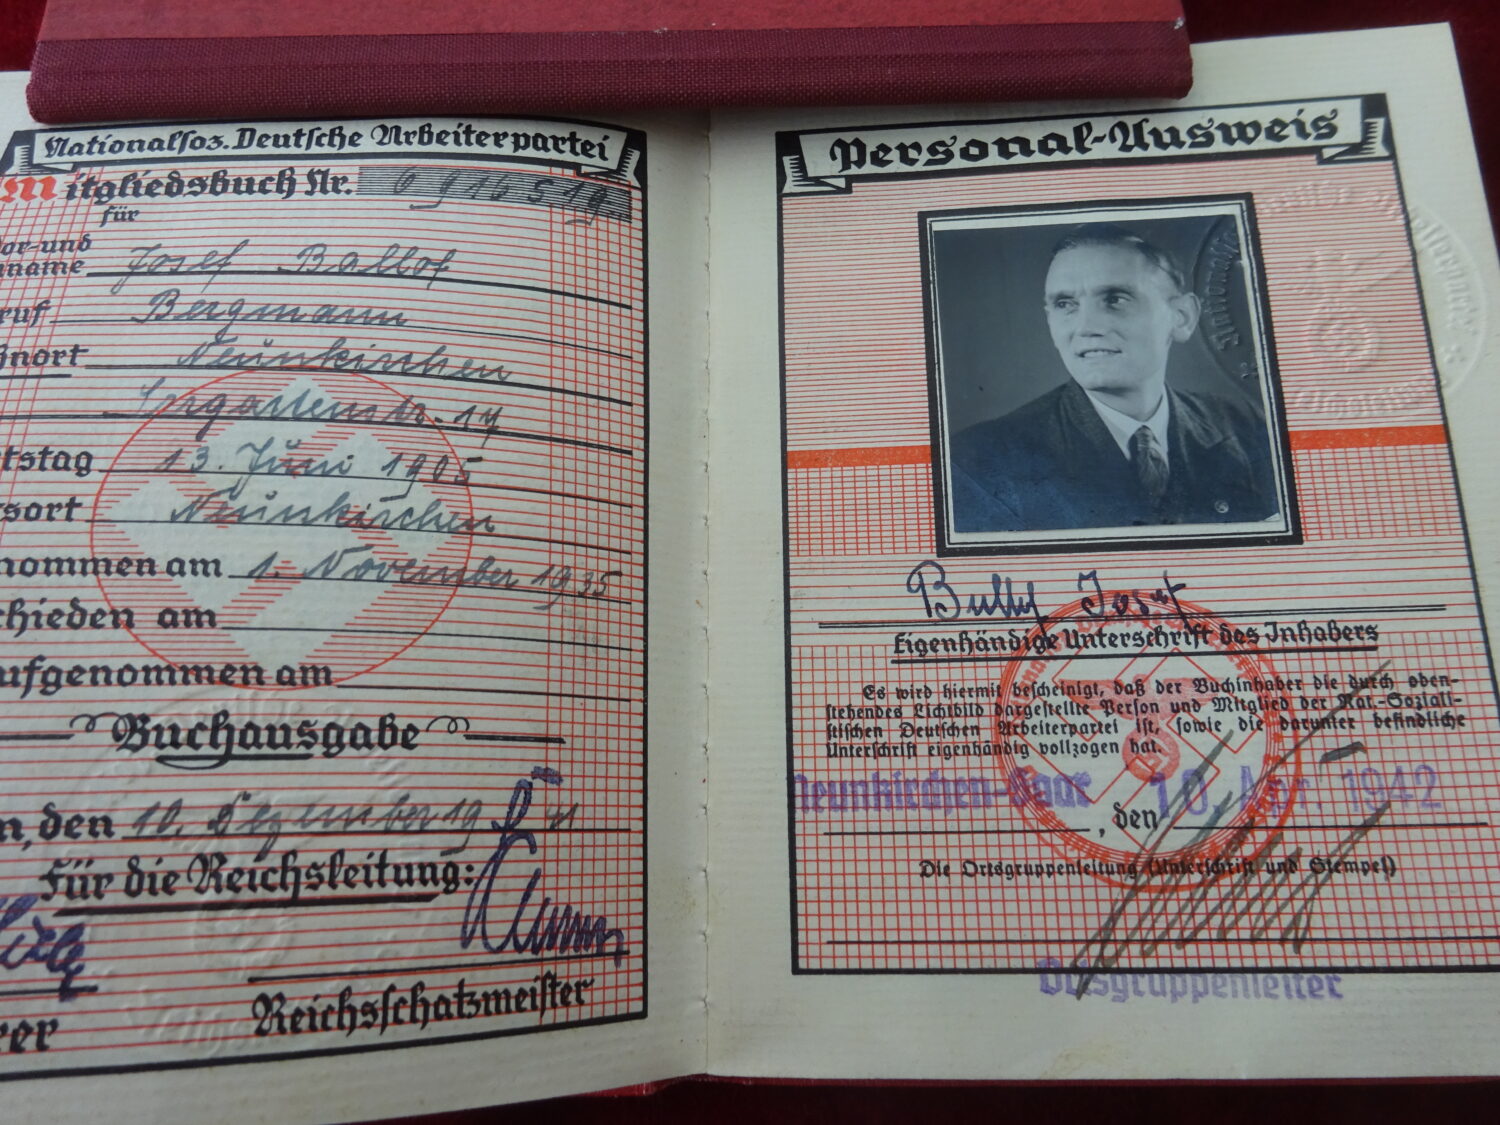 Nationalsoz. Deutsche Arbeiterpartei
Mitgliedsbuch Nr. 6916519
für
Vor-und
name Josef Ballof
ruf Bergmann
nort Neunkirchen
str. 14
tstag 13. Juni 1905
sort Neunkirchen
nommen am 1. November 1935
chieden am
ufgenommen am
Buchausgabe
n, den 10. Dezember 1941
Für die Reichsleitung:
rer
Reichsschatzmeister
Personal-Ausweis
Ballof Josef
Eigenhändige Unterschrift des Inhabers
Es wird hiermit bescheinigt, daß der Buchinhaber die durch oben-
stehendes Lichtbild dargestellte Person und Mitglied der Nat.-Soziali-
stischen Deutschen Arbeiterpartei ist, sowie die darunter befindliche
Unterschrift eigenhändig vollzogen hat.
Neunkirchen-Saar, den 10. Apr. 1942
Die Ortsgruppenleitung (Unterschrift und Stempel)
Ortsgruppenleiter